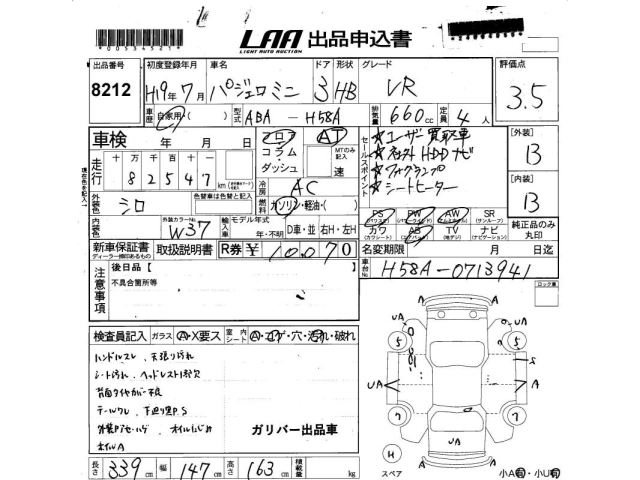 *00534521*
LAA 出品申込書
LIGHT AUTO AUCTION
出品番号 8212
初度登録年月 H19年7月
車名 パジェロミニ
ドア 3 形状 HB
グレード VR
評価点 3.5
車歴 自家用・( )
型式 ABA - H58A
排気量 660cc 定員 4人
車検 年 月 日
フロア・コラム・ダッシュ
AT
MTのみ記入 速
セールスポイント
★ユーザー買取車
★社外HDDナビ
★フォグランプ
★シートヒーター
[外装] B
[内装] B
走行 十万千百十
82547 km
冷房 AC
燃料 ガソリン・軽油・( )
外装色 シロ
色替車は色替と記入
内装色
外装カラーNo W37
輸入車 モデル年式 年・不明
D車・並 右H・左H
PS PW AW SR
(サンルーフ)
カワ AB TV ナビ
(カワシート) (エアバッグ) (地デジ) (ナビゲーション)
純正品のみ丸印
新車保証書 取扱説明書 R券 ¥10,070
ディーラー捺印あるもの
名変期限 月 日迄
車台No H58A-0713941
注意事項
後日品【
不具合箇所等
ロック車
検査員記入 ガラス A・X要ス 室内シート A・コゲ・穴・汚れ・破れ
ハンドルスレ、天張り汚れ
シート汚れ、ヘッドレスト1ケ欠
背面タイヤカバー不良
テールワレ、下廻り塗P.S
ホイルA
ガリバー出品車
長さ 339cm 幅 147cm 高さ 163cm 積載量 kg
UA
UA
5
5
S
UA
A
A
7
7
UA
A
A
H
スペア
小A有・小U有